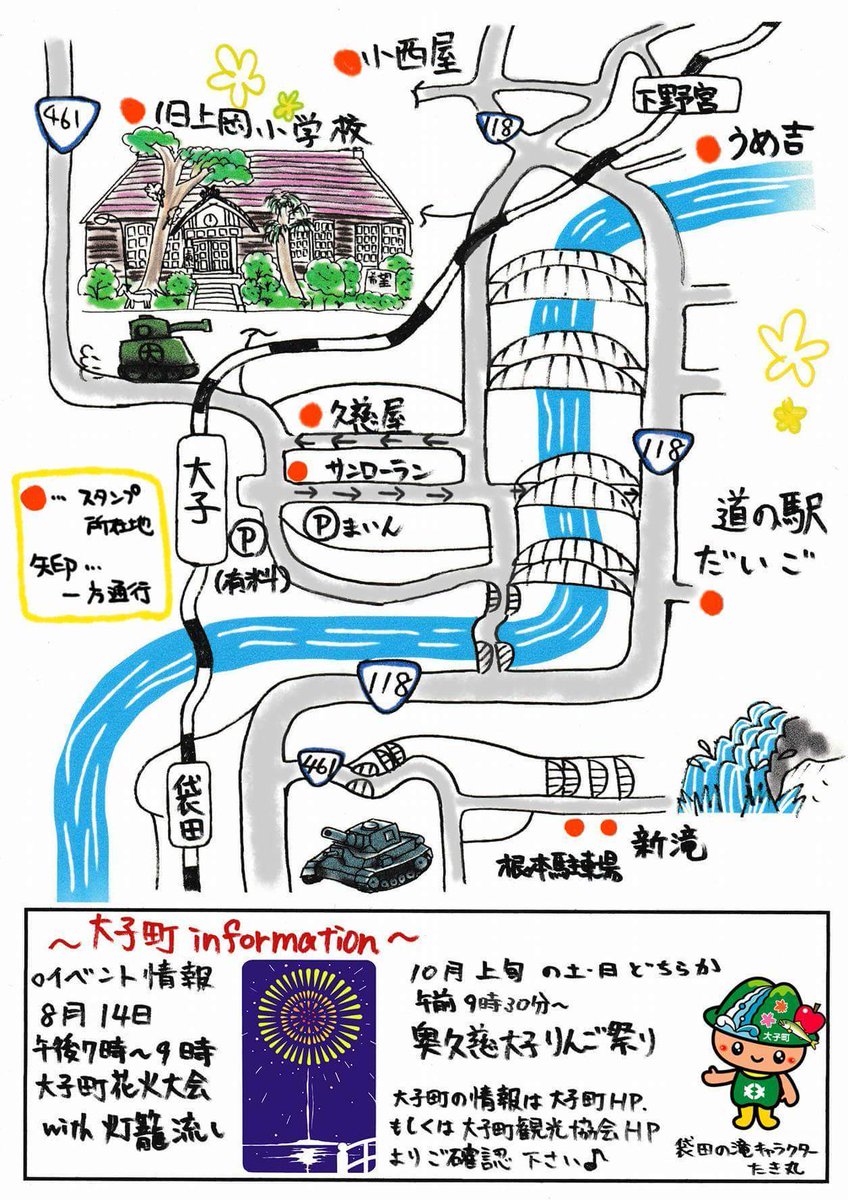 小西屋
461
旧上岡小学校
118
下野宮
うめ吉
希望
久慈屋
サンローラン
118
大子
P
(有料)
P まいん
道の駅
だいご
…スタンプ
所在地
矢印…
一方通行
118
461
袋田
根本駐車場
新滝
~大子町 information~
○イベント情報
8月14日
午後7時~9時
大子町花火大会
with 灯籠流し
10月上旬の土・日どちらか
午前9時30分~
奥久慈大子りんご祭り
大子町の情報は大子町HP.
もしくは大子町観光協会HP
よりご確認下さい♪
大子町
袋田の滝キャラクター
たき丸